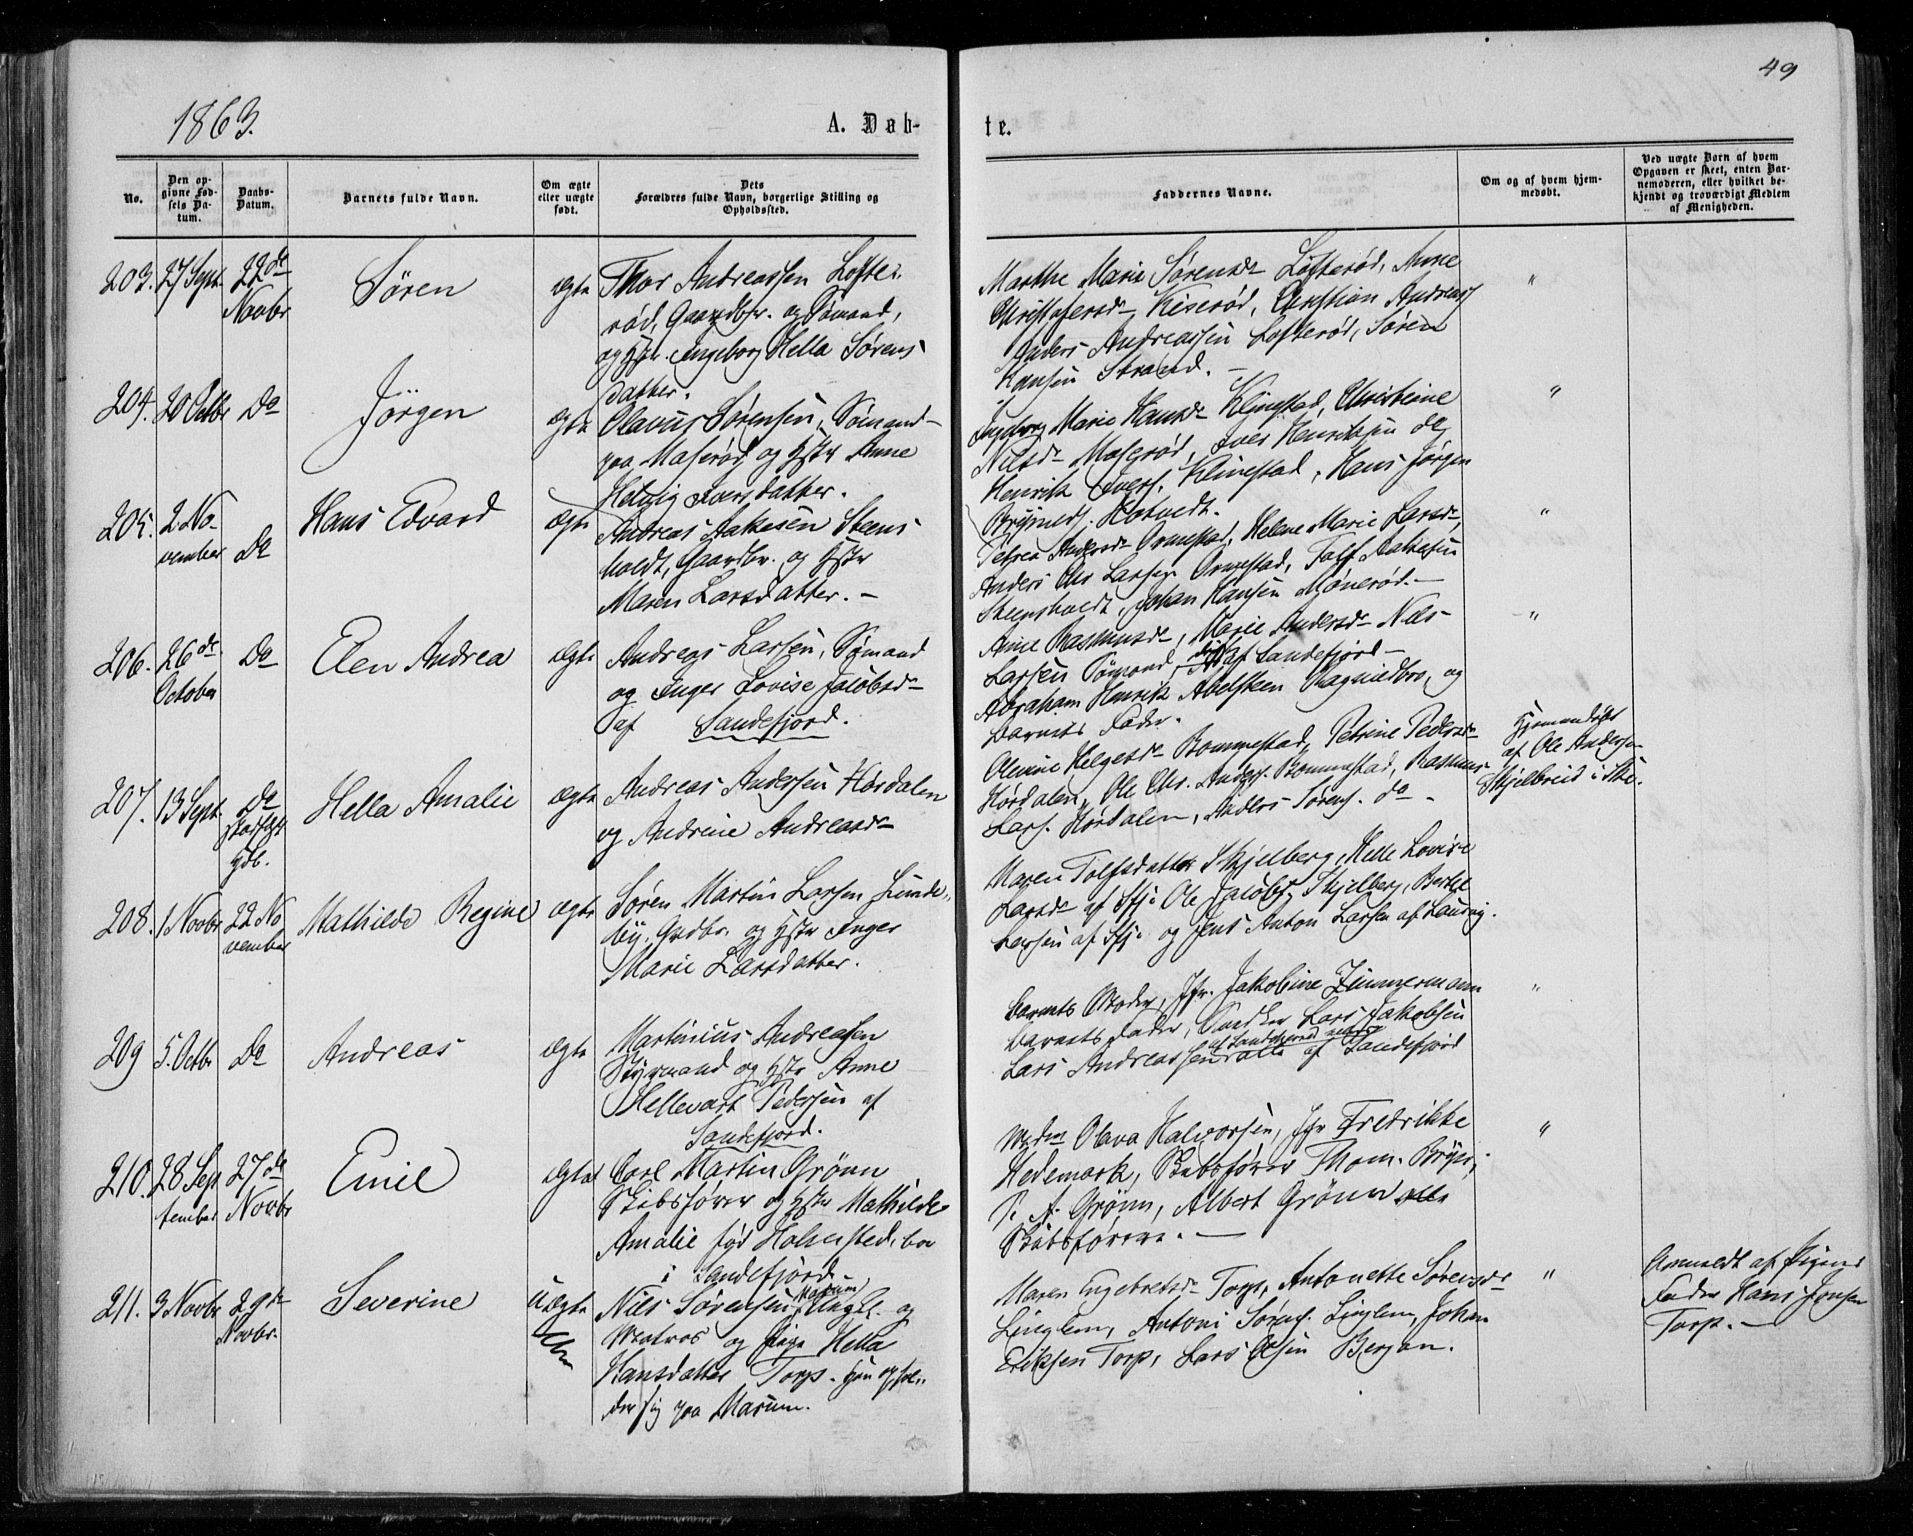 49
1863.
A. Døb-
te.
No.
Den op-
givne Fød-
sels Da-
tum.
Daabs-
Datum.
Barnets fulde Navn.
Om ægte
eller uægte
født.
Dets
Forældres fulde Navn, borgerlige Stilling og
Opholdssted.
Faddernes Navne.
Om og af hvem hjem-
medøbt.
Ved uægte Børn af hvem
Opgaven er skeet, enten Bar-
nemoderen, eller hvilket be-
kjendt og troværdigt Medlem
af Menigheden.
203. 27 Sept. 22de Novbr Søren ægte
Thor Andreassen Lofte-
rød, Gaardbr. og Sømand,
og Hst. Ingeborg Hella Sørens
datter.
Marthe Marie Sørensdr Lofterød, Anne
Christofersdr Kiserød, Christian Andreass
Anders Andreassen Lofterød, Søren
Hansen Strand. —
"
204. 20 Octbr Do Jörgen ægte
Olavus Sørensen, Sømand
paa Maserød og Hstr Anne
Helvig Iversdatter.
Ingeborg Marie Hansdr Klinestad, Christine
Nilsdr Maserød, Iver Henriksen og
Henrik Ivers. Klinestad, Hans Jørgen
Brynilds. Hotvedt.
"
205. 2 No-
vember Do Hans Edvard ægte
Andreas Aakesen Steens
holdt, Gaardbr. og Hstr
Maren Larsdatter. —
Petrea Andersdr Ormestad, Helene Marie Larsdr
Anders Chr Larsen Ormestad, Tolf Aakesen
Steensholdt, Johan Hansen Mønerød. —
"
206. 26de
October Do Elen Andrea ægte
Andreas Larsen, Sømand
og Inger Lovise Jacobsdr
af Sandefjord.
Anne Rasmusdr, Marie Andersdr Nils
Larsen Sømand, af Sandefjord —
Abraham Henrik Abelsteen og
Barnets Fader.
"
207. 13 Sept. Do
Hdb. Hella Amalie ægte
Andreas Andersen Hørdalen
og Andrine Andreasdr
Olevine Helgesdr Bommestad, Petrine Pedersdr
Hørdalen, Ole Chr. Anders. Bommestad, Rasmus
Lars. Hørdalen, Anders Sørens. do —
Hjemmedøbt
af Ole Andersen
Skjelbred i Ske.
208. 1 Novbr 22 No
vember Mathilde Regine ægte
Søren Martin Larsen Lunde-
by, Grdbr. og Hstr Inger
Marie Larsdatter.
Maren Tolfsdatter Skjelberg, Helle Lovise
Larsdr af Sfj. Ole Jacobs. Skjelberg, Bertel
Larsen af Sfj. og Jens Anton Larsen af Laurvig.
209 5. Octbr Do Andreas ægte
Martinius Andreasen
Styrmand og Hstr Anne
Hellevart Pedersen af
Sandefjord.
Barnets Moder, Jfr. Jakobine Zimmermann
Barnets Fader, Snedker Lars Jakobsen
Lars Andreassen alle af Sandefjord
"
210. 28 Sep
tember 27de
Novbr Emil ægte
Carl Martin Grönn
Skibsfører og Hstr Mathilde
Amalie fød Holmsted, bor
i Sandefjord
Madm Olava Halvorsen, Jfr Fredrikke
Hedemark, Skibsfører Thom. Bryer,
P. A. Grönn, Albert Grönn alle
Skibsførere. —
"
211. 3 Novbr 29de
Novbr. Severine Uægte
Nils Sørensen Marum Ungkl. og
Matros og Pige Hella
Hansdatter Torp. Hun ophol-
der sig paa Marum.
Maren Engebretsdr Torp, Antonette Sørensdr
Linglem, Antoni Sørens. Linglem, Johan
Eriksen Torp, Lars Olsen Bergan.
"
Anmeldt af Pigens
Fader Hans Jensen
Torp. —